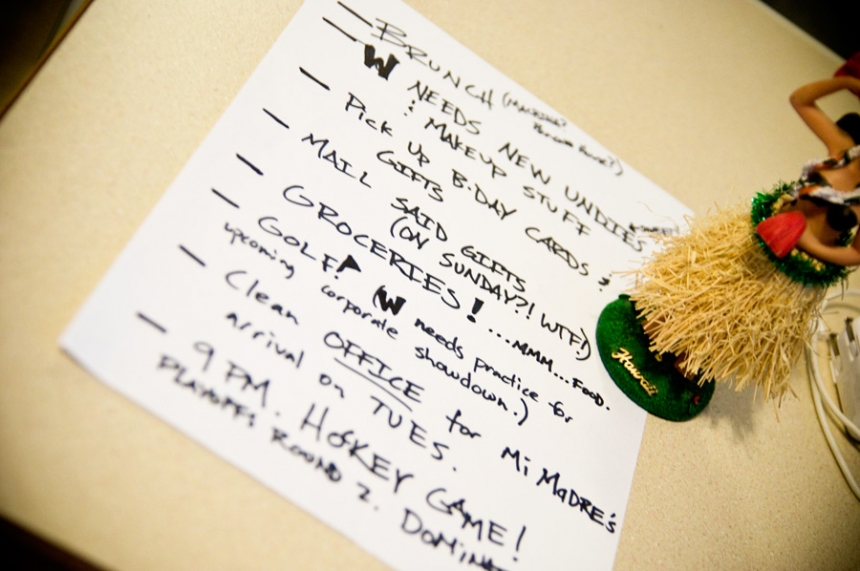 — BRUNCH
— W NEEDS NEW UNDIES
& MAKEUP STUFF
— Pick UP B·DAY CARDS &
GIFTS
— MAIL SAID GIFTS
(ON SUNDAY?! WTF!)
— GROCERIES! ...MMM...FOOD.
— GOLF! (W needs practice for
upcoming corporate showdown.)
— Clean OFFICE for Mi MADRE's
arrival on TUES.
— 9 PM. HOCKEY GAME!
PLAYOFFS ROUND 2.
Hawaii